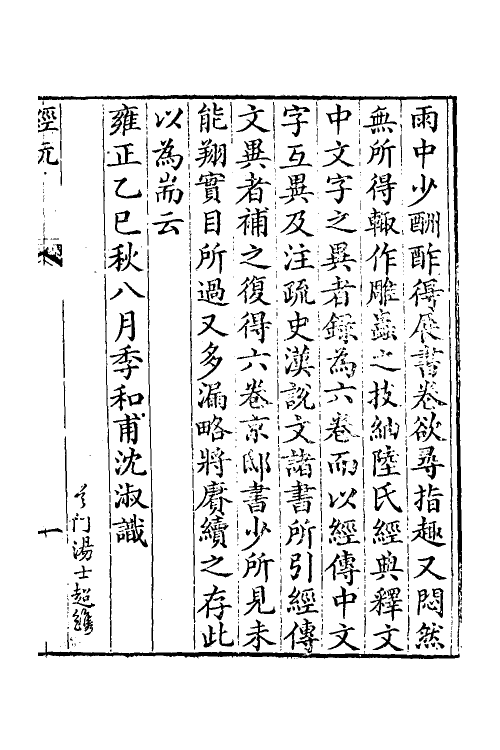 雨中少酬酢得展書卷欲尋指趣又悶然
無所得輙作雕蟲之技紬陸氏經典釋文
中文字之異者録為六卷而以經傳中文
字互異及注疏史漢說文諸書所引經傳
文異者補之復得六卷京邸書少所見未
能翔實目所過又多漏略將賡續之存此
以為耑云
雍正乙巳秋八月季和甫沈淑識
吳門湯士超鐫
經元
一